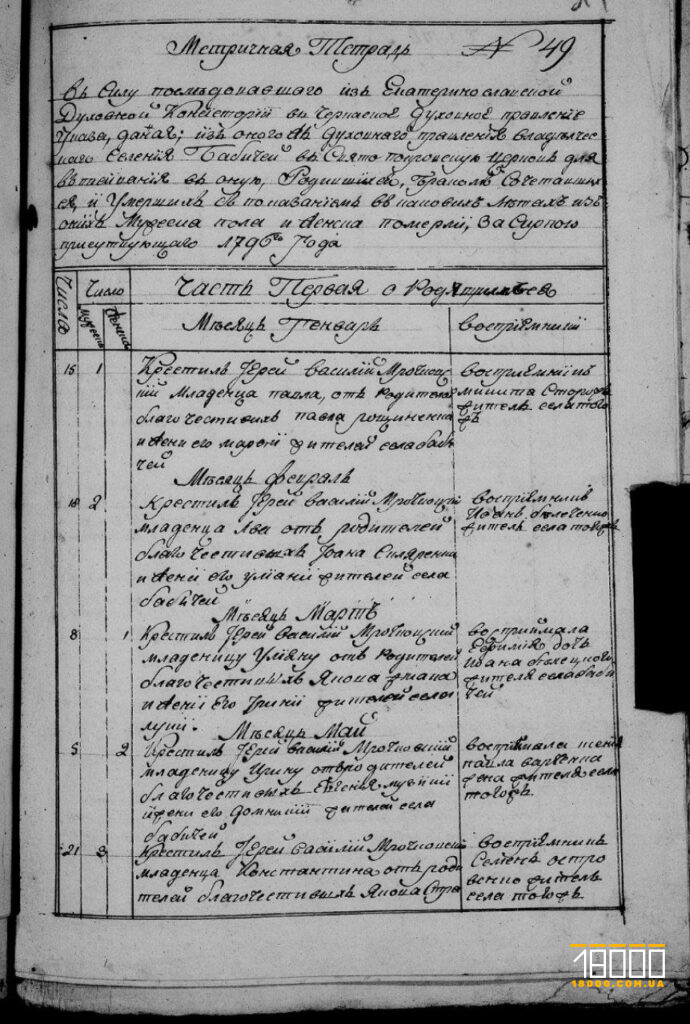 Метричная Тетрадь № 49
въ Силу последовавшаго изъ Екатеринославской
Духовной Консисторіи въ Черкаское духовное правленіе
Указа, даная; изъ оного жъ духовнаго правленія владѣлчес
каго селенія Бабичей въ Свято покровскую церковь для
въписиванія въ оную, Родившихся, Бракомъ Сочетавших
ся, и Умершихъ съ показаніемъ въ каковихъ Лѣтахъ изъ
онихъ Мужеска пола и женска померли, За Сирпою
присутвующаго 1796го Года
Числа
Число
мужеска
женска
Часть Первая о Родящихся
Мѣсяцъ Генварь
воспріемники
15 1 Крестилъ Іерей Василій Мрочковс
кій Младенца павла, отъ родителей
благочестивихъ павла
и жени его марѳи жителей села баби
чей
воспріемникъ
никита
житель села того
жъ
Мѣсяцъ февраль
18 2 Крестилъ Іерей василій Мрочковскій
младенца Лва отъ родителей
благочестивихъ Іоана Скляренка
и жени его уліянии жителей села
бабичей
воспріемникъ
Иванъ
житель села тогожъ
Мѣсяцъ Мартъ
8 1 Крестилъ Іерей василій Мрочковский
младеницу Уляну отъ родителей
благочестивихъ Якова
и жени его Ірини жителей села
воспріймала
Евфимія дочь
Ивана билецкого
жителя села баби
чей
Мѣсяцъ Май
5 2 Крестилъ Іерей василій Мрочковский
младеницу Ирину отъ родителей
благочестивихъ Евгенія
жени его Домникии жителей села
бабичей
воспріймала жена
павла
жителя села
тогожъ
21 3 Крестилъ Іерей василій Мрочковскій
младенца Константина отъ роди
телей благочестивихъ Якова
воспріемникъ
Семенъ остро
венко житель
села тогожъ
18000
18000.COM.UA